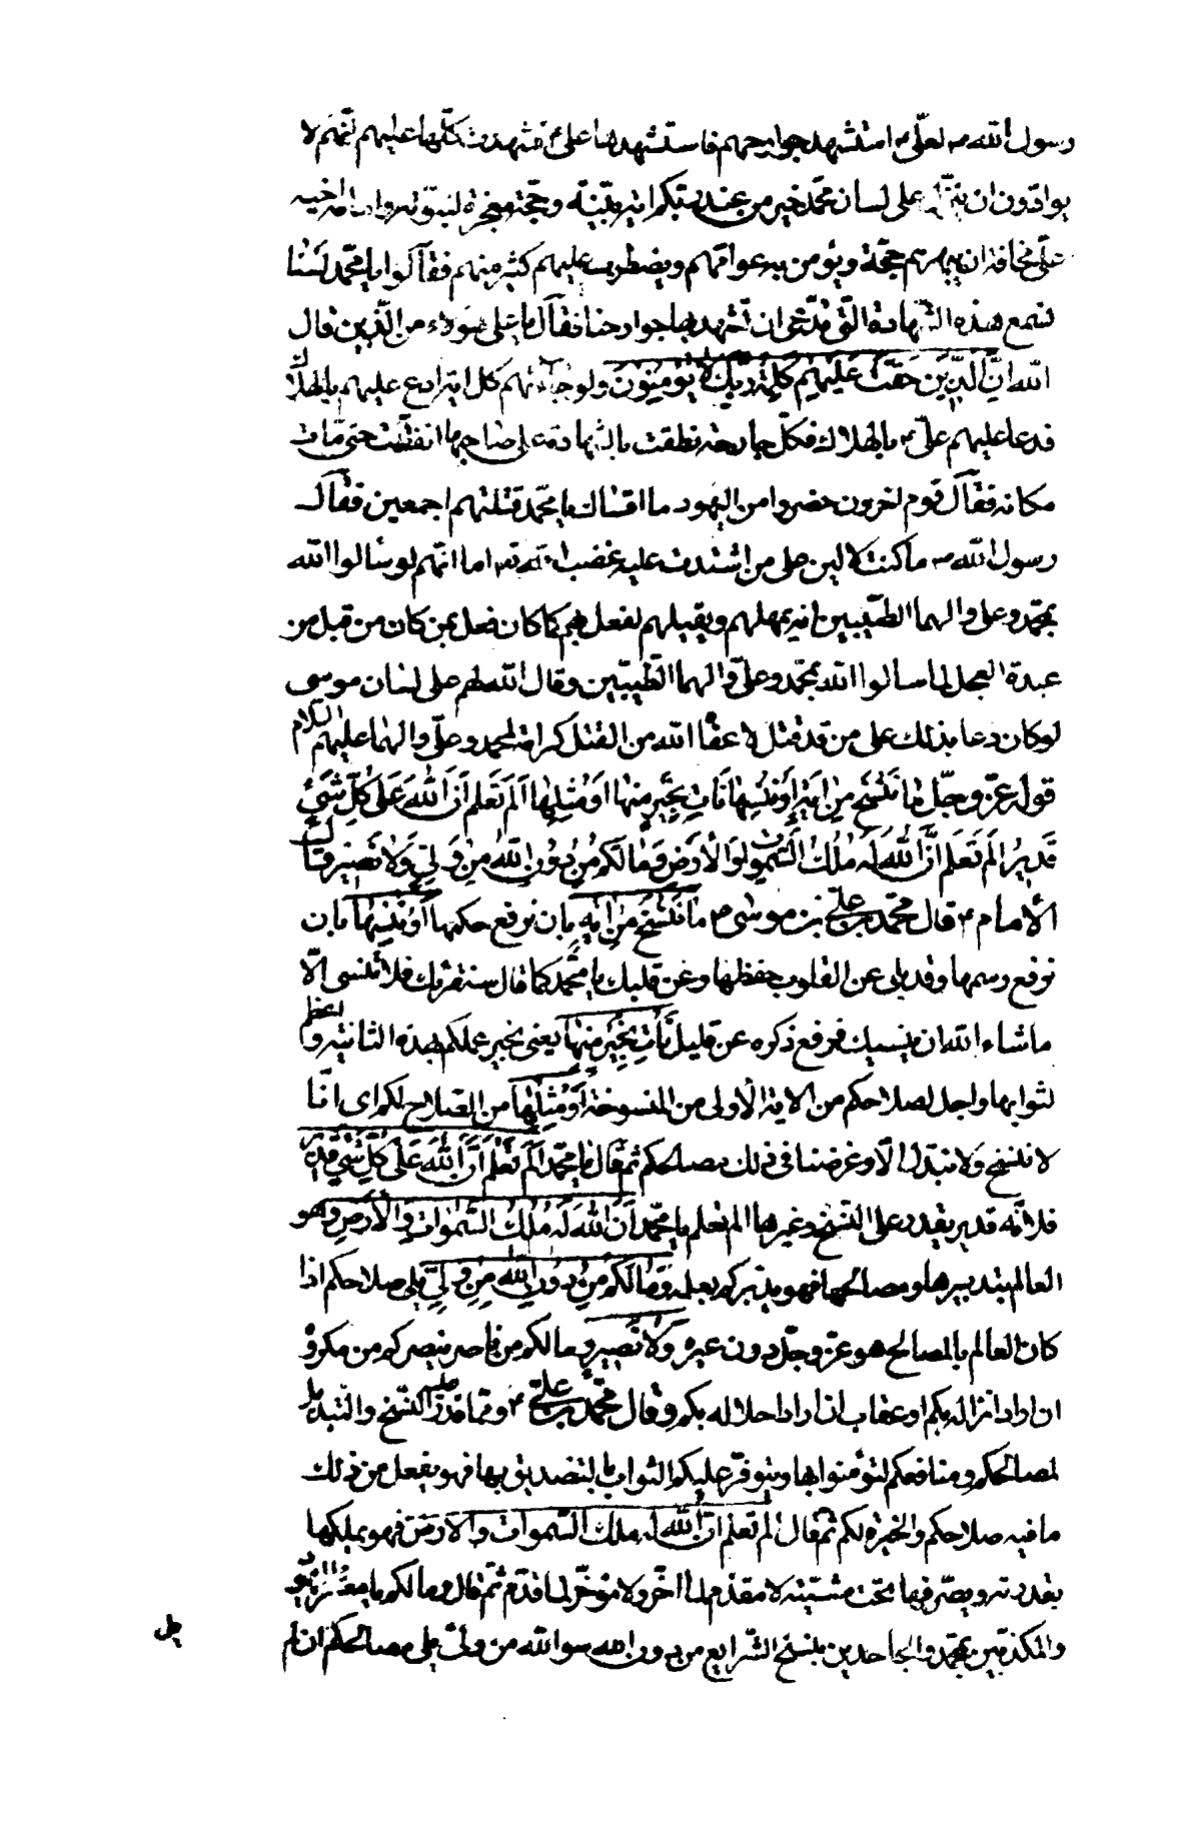 رسول الله ص لعلّی ع استشهد جوارحهم فاستشهدها علی ع فشهدت کلّها علیهم انّهم لا
یوادّون ان ینزل علی لسان محمّد خیر من عند ربّکم ایة بیّنة و حجّة معجزة لنبوّته و امامة اخیه
علیّ مخافة ان یبهرهم حجّة و یؤمن به عوامّهم و یضطرب علیهم کثیر منهم فقالوا یا محمّد لسنا
نسمع هذه الشّهادة الّتی تدّعی ان تشهد بها جوارحنا فقال یا علی هؤلاء من الّذین قال
الله اِنَّ الَّذینَ حَقَّتْ عَلَیْهِمْ کَلِمَةُ رَبِّکَ لا یُؤْمِنُونَ ولو جاءتهم کل ایة ادع علیهم بالهلاک
فدعا علیهم علیّ ع بالهلاک فکلّ جارحة نطقت بالشهادة علی صاحبها انفتّت حتّی مات
مکانه فقال قوم اخرون حضروا من الیهود ما اقساک یا محمّد قتلتهم اجمعین فقال
رسول الله ص ما کنت لالین علی من اشتدت علیه غضب الله تع اما انّهم لو سالوا الله
بمحمّد و علی و الهما الطّیّبین ان یمهلهم و یقیلهم لفعل بهم کما کان فعل بمن کان من قبل من
عبدة العجل لما سالوا الله بمحمّد و علیّ و الهما الطّیبیّن و قال الله لهم علی لسان موسی
لو کان دعا بذلک علی من قد قتل لاعفاه الله من القتل کرامة لمحمد و علیّ و الهما علیهم السلام
قوله عزّ و جلّ ما نَنْسَخْ مِنْ ایَةٍ اَوْ نُنْسِها نَأْتِ بِخَیْرٍ مِنْها اَوْ مِثْلِها اَلَمْ تَعْلَمْ اَنَّ اللهَ عَلی کُلِّ شَیْءٍ
قَدیرٌ اَلَمْ تَعْلَمْ اَنَّ اللهَ لَهُ مُلْکُ السَّمواتِ وَالْاَرْضِ وَمالَکُمْ مِنْ دُونِ اللهِ مِنْ وَلِیٍّ وَلا نَصیرٍ قال
الأمام ع قال محمّد بن علی بن موسی ع ما نَنْسَخْ مِنْ ایَةٍ بان نرفع حکمها اَوْ نُنْسِها بان
نرفع رسمها و قد بلی عن القلوب حفظها و عن قلبک یا محمّد کما قال سنقرئک فلا تنسی الّا
ماشاء الله ان ینسیک فرفع ذکره عن قلبک نَأْتِ بِخَیْرٍ مِنْها یعنی بخیر عملکم بهذه الثانیة و اعظم
لثوابها و اجل لصلاحکم من الایة الأولی من المنسوخة اَوْ مِثْلِها من الصّلاح لکم ای انّا
لا ننسخ ولا نبدّل الّا و غرضنا فی ذلک مصالحکم ثمّ قال یا محمّد اَلَمْ تَعْلَمْ اَنَّ اللهَ عَلی کُلِّ شَیْءٍ قَدیرٌ
فلانّه قدیر یقدر علی النّسخ و غیرها الم تعلم یا محمّد اَنَّ اللهَ لَهُ مُلْکُ السَّمواتِ وَالْاَرْضِ و هو
العالم بتدبیرها و مصالحها فهو یدبّرکم بعلمه وَمالَکُمْ مِنْ دُونِ اللهِ مِنْ وَلِیٍّ یلی صلاحکم اذا
کان العالم بالمصالح هو عزّ و جلّ دون غیره وَلا نَصیرٍ و مالکم من ناصر ینصرکم من مکروه
ان اراد انزاله بکم او عقاب ان اراد احلاله بکم و قال محمّد بن علی ع و ممّا قدّر علیه النّسخ و التبدیل
لمصالحکم و منافعکم لتؤمنوا بها و یتوفّر علیکم الثواب بالتصدیق بها فهو یفعل من ذلک
ما فیه صلاحکم و الخیرة لکم ثمّ قال الم تعلم انّ الله له ملک السّموات و الارض فهو یملکها
بقدرته و یصرّفها تحت مشیّته لا مقدّم لما اخّر ولا مؤخّر لما قدّم ثمّ قال و مالکم یا معشر الیهود
والمکذّبین بمحمّد و الجاحدین بنسخ الشّرایع من دون الله سوا الله من ولیّ یلی مصالحکم ان لم
یل